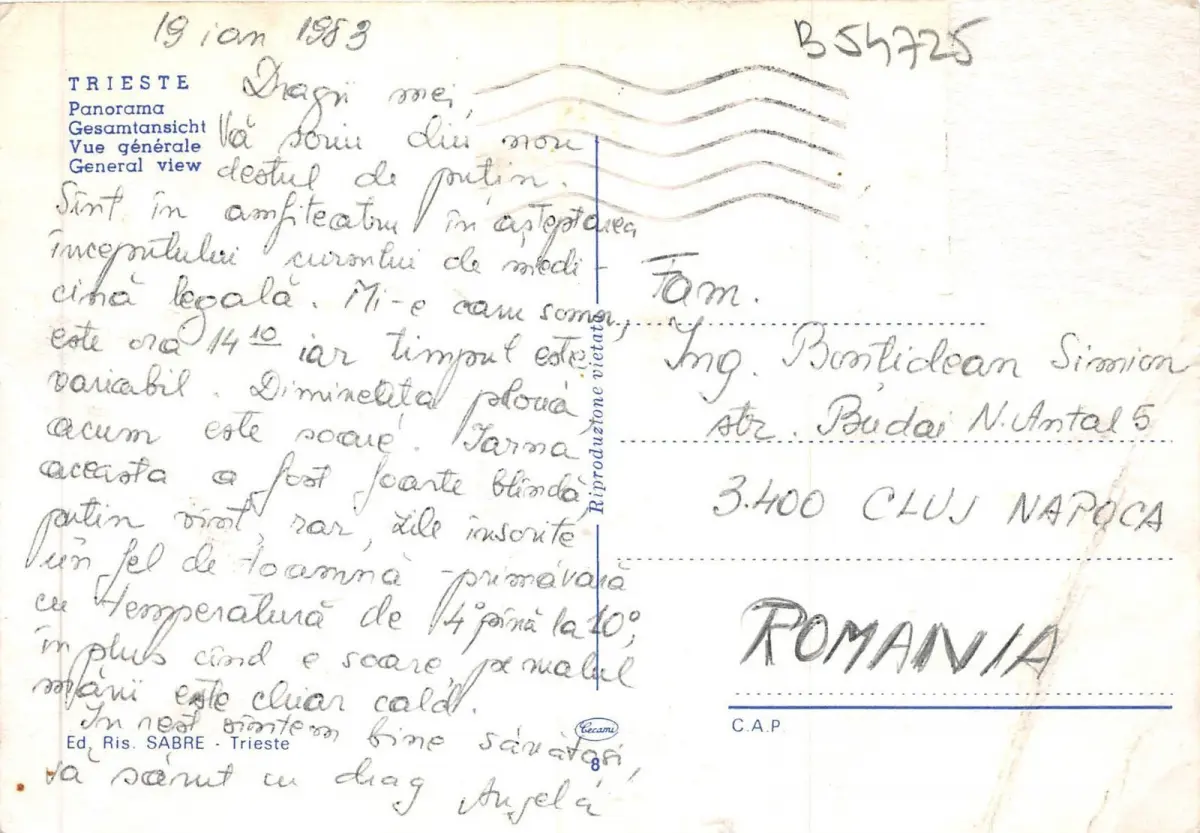 19 ian 1983
B54725
TRIESTE
Panorama
Gesamtansicht
Vue générale
General view
Dragii mei,
Vă scriu din nou
destul de puțin.
Sînt în amfiteatru în așteptarea
începutului cursului de medi-
cină legală. Mi-e cam somn,
este ora 14 10 iar timpul este
variabil. Dimineața ploua
acum este soare. Iarna
aceasta a fost foarte blîndă
puțin vînt, rar, zile însorite
un fel de toamnă-primăvară
cu temperatură de 4° pînă la 10°,
în plus cînd e soare, pe malul
mării este chiar cald.
În rest sîntem bine sănătoși,
Vă sărut cu drag Angela
Ed. Ris. SABRE - Trieste
Riproduzione vietata
Cecami
8
Fam.
Ing. Bonțidean Simion
str. Budai N. Antal 5
3.400 CLUJ NAPOCA
ROMANIA
C.A.P.